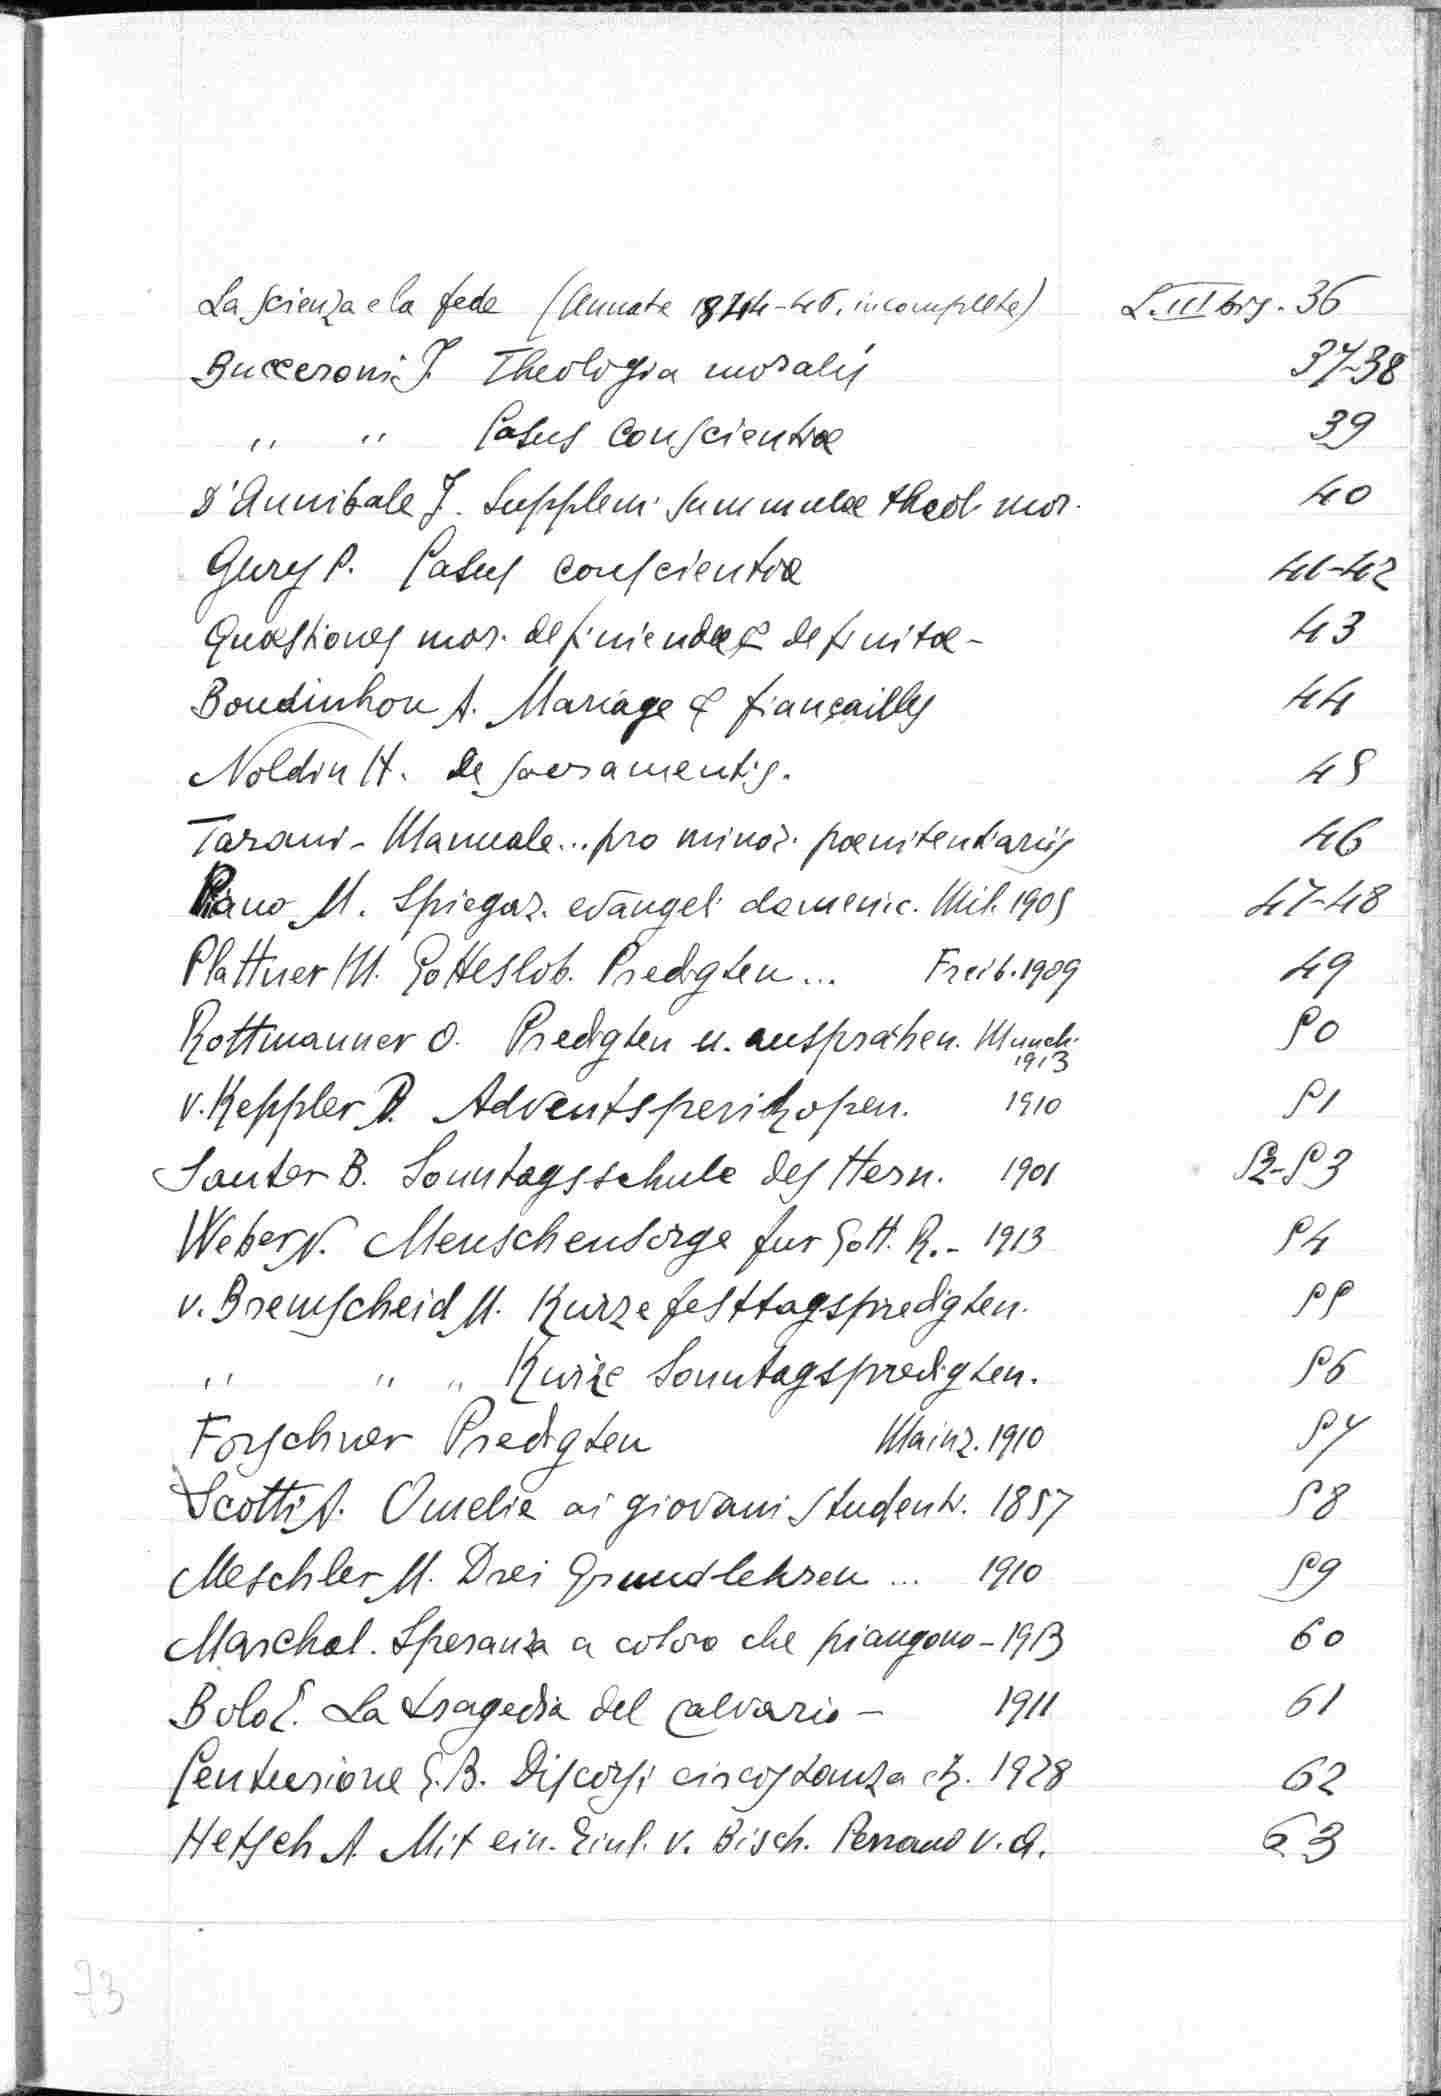 La scienza e la fede (Annate 1844-46. incomplete) L. III bis. 36
Bucceroni J. Theologia moralis 37-38
" " Casus conscientiæ 39
D'Annibale J. Supplem. summulæ theol. mor. 40
Gury P. Casus conscientiæ 41-42
Quæstiones mor. definiendæ & definitæ - 43
Boudinhon A. Mariage & fiançailles 44
Noldin H. De sacramentis. 45
Tarani - Manuale... pro minor. pœnitentiariis 46
Piano M. Spiegaz. evangeli domenic. Mil. 1905 47-48
Plattner M. Gotteslob. Predigten... Freib. 1909 49
Rottmanner O. Predigten u. ansprachen. Munch. 1913 50
v. Keppler P. Adventsperikopen. 1910 51
Sauter B. Sonntagsschule des Hern. 1901 52-53
Weber N. Menschensorge fur Gott. R. - 1913 54
v. Bremscheid M. Kurze festtagspredigten. 55
" " " Kurze Sonntagspredigten. 56
Forschner Predigten Mainz. 1910 57
Scotti A. Omelie ai giovani studenti. 1857 58
Meschler M. Drei Grundlehren ... 1910 59
Marchal. Speranza a coloro che piangono - 1913 60
Bolo E. La tragedia del calvario - 1911 61
Centurione G.B. Discorsi circostanza etz. 1928 62
Hetsch A. Mit ein. Einl. v. Bisch. v. O. 63
73